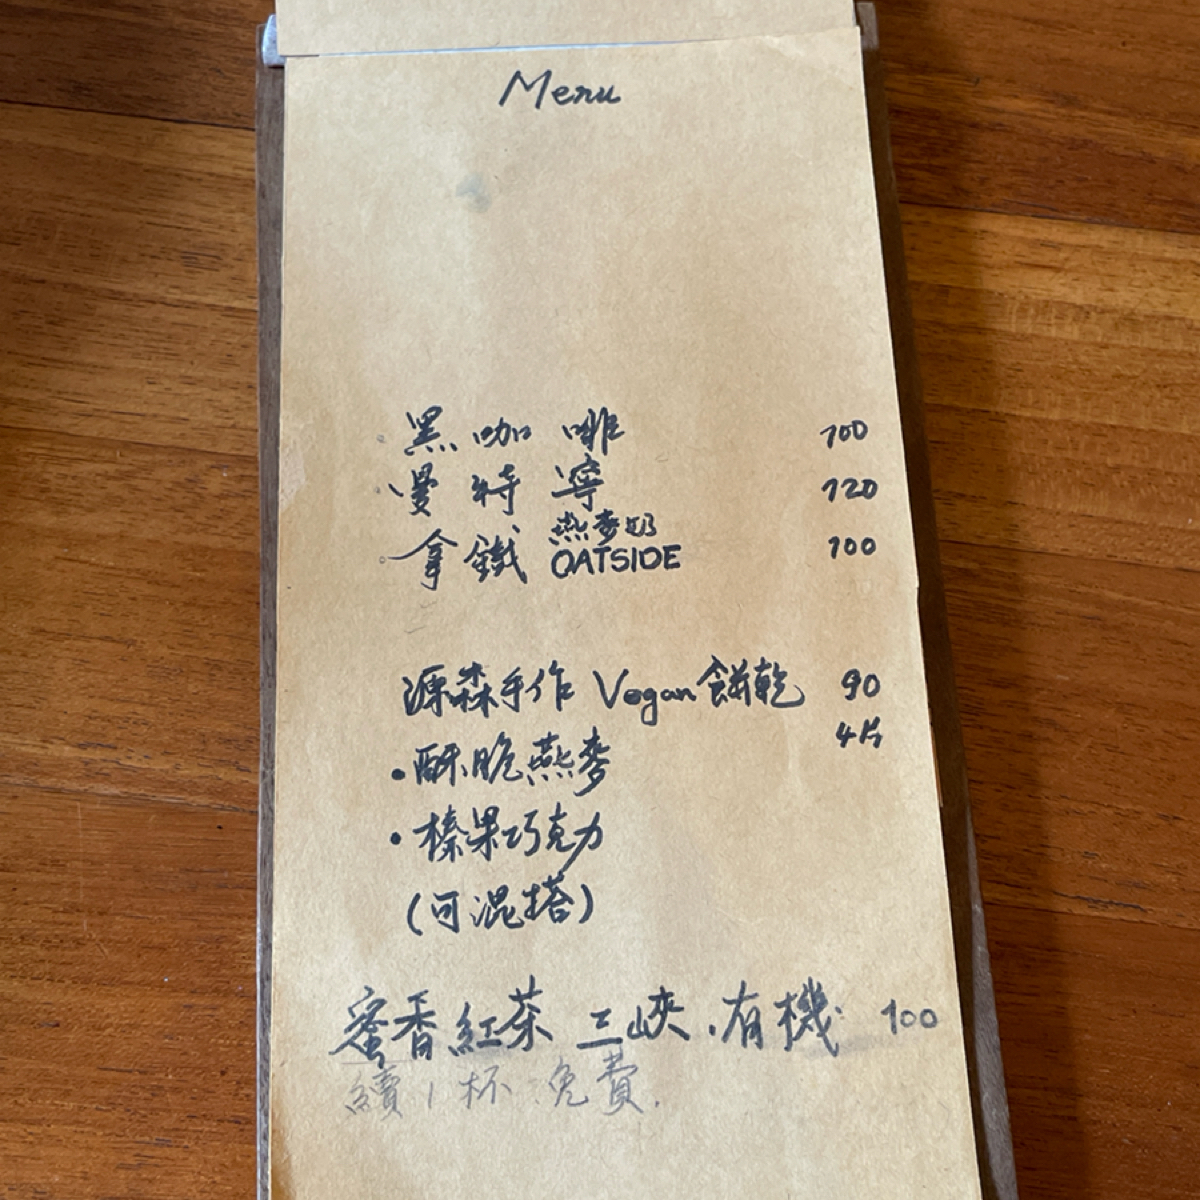 Menu
黑咖啡 100
曼特寧 120
燕麥奶
拿鐵 OATSIDE 100
源森手作 Vegan餅乾 90
4片
·酥脆燕麥
·榛果巧克力
(可混搭)
蜜香紅茶 三峽.有機 100
續1杯免費.